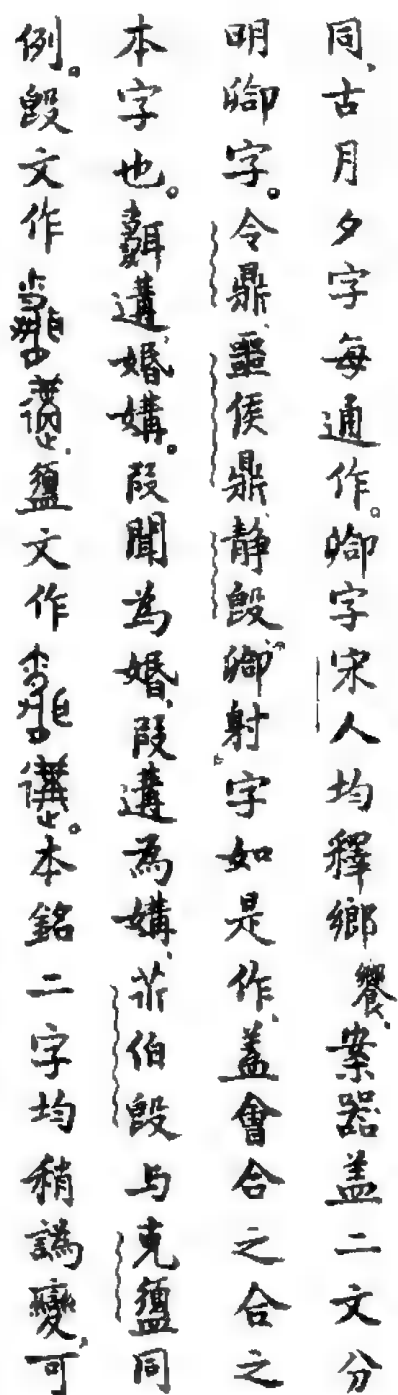 同、古月夕字每通作。䢽字宋人均釋鄉饗、案器蓋二文分
明䢽字。令鼎、噩侯鼎、靜𣪘“䢽射”字如是作、蓋會合之合之
本字也。遘、婚媾。叚聞為婚、叚遘為媾、伯𣪘与克盨同
例。𣪘文作、盨文作。本銘二字均稍譌變、可